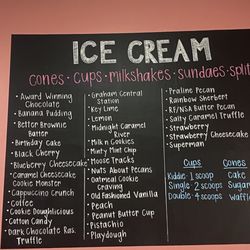 ICE CREAM
cones • cups • milkshakes • sundaes • split
• Award Winning
Chocolate
• Banana Pudding
• Better Brownie
Batter
• Birthday Cake
• Black Cherry
• Blueberry Cheesecake
• Caramel Cheesecake
• Cookie Monster
• Cappuccino Crunch
• Coffee
• Cookie Doughlicious
• Cotton Candy
• Dark Chocolate Ras.
Truffle
• Graham Central
Station
• Key Lime
• Lemon
• Midnight Caramel
River
• Milk n Cookies
• Minty Mint Chip
• Moose Tracks
• Nuts About Pecans
• Oatmeal Cookie
Craving
• Old Fashioned Vanilla
• Peach
• Peanut Butter Cup
• Pistachio
• Playdough
• Praline Pecan
• Rainbow Sherbert
• RF/NSA Butter Pecan
• Salty Caramel Truffle
• Strawberry
• Strawberry Cheesecake
• Superman
Cups
Kiddie- 1 scoop
Single- 2 scoops
Double- 4 scoops
Cones
Cake
Sugar
Waffle